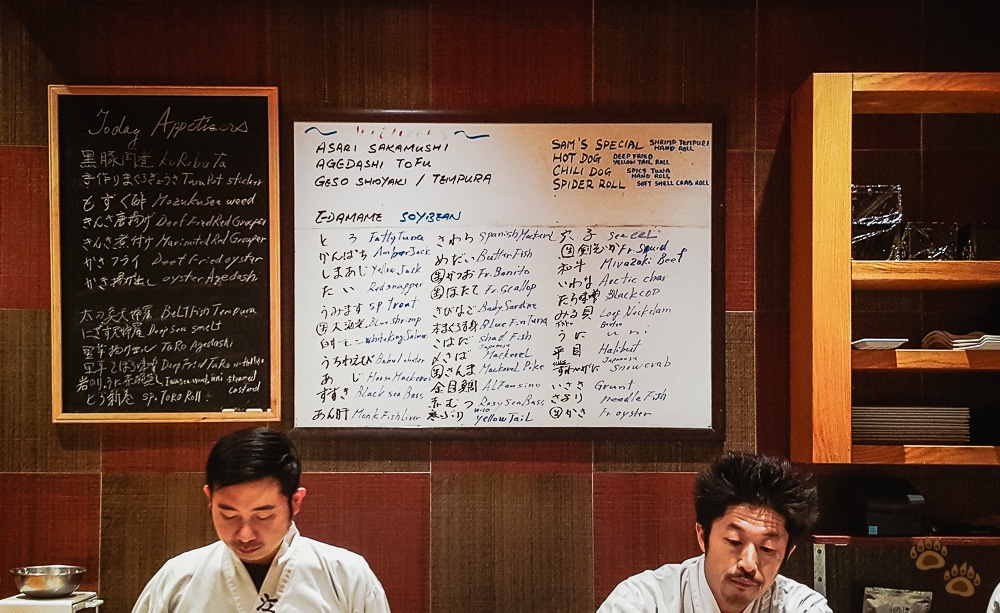 Today Appetisers
黒豚角煮 KuRobuTa
手作りまぐろぎょうざ Tuna Pot sticker
もずく酢 Mozuku Sea weed
きんき唐揚げ Deef Fried Red Grouper
きんき煮付け Marinated Red Grouper
かきフライ Deef Fried oyster
かき揚げ出し oyster Agedash
太刀魚天ぷら BeLT Fish Tempura
にぎす天ぷら Deep Sea smelt
里芋揚げ出し TaRo Agedashi
Deep Fried TaRo
steamed
custard
とろ新香 sp. ToRO RoLL
ASARI SAKAMUSHI
AGEDASHI TOFU
GESO SHIOYAKI / TEMPURA
EDAMAME SOYBEAN
SAM'S SPECIAL SHRIMP TEMPURA HAND ROLL
HOT DOG DEEP FRIED YELLOW TAIL ROLL
CHILI DOG SPICY TUNA HAND ROLL
SPIDER ROLL SOFT SHELL CRAB ROLL
とろ Fatty Tuna
かんぱち Amber Jack
しまあじ Yellow Jack
たい Red snapper
うみます sp Trout
生 Blue shrimp
White King Salmon
うちわえび Babu lobster
あじ Horse Mackerel
すずき Black Sea Bass
あん肝 Monk Fish Liver
さわら Spanish Mackerel
めだい Butter Fish
生かつお Fr. Bonito
生ほたて Fr. Scallop
きびなご Baby Sardine
本まぐろ赤身 Blue Fin Tuna
こはだ Shad Fish
〆さば Japanese Mackerel
生さんま Mackerel Pike
金目鯛 ALFonsino
赤むつ Rosy Sea Bass
寒ぶり Wild Yellow TaiL
穴子 Sea eeL
生 Fr. Squid
和牛 Miyazaki Beef
いわな Arctic char
たら味噌 Black COD
みる貝 Long Neck clam
うに uni
平目 Halibut
ずわいがに Japanese snow crab
いさき Grunt
さより needle Fish
生かき Fr. oyster